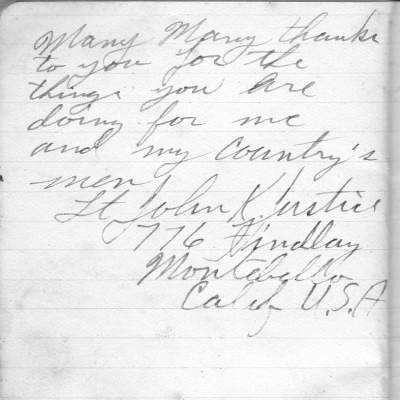 Many Many thanks
to you for the
things you are
doing for me
and my country's
men
Lt John K Justice
776 Findlay
Montebello
Calif U.S.A